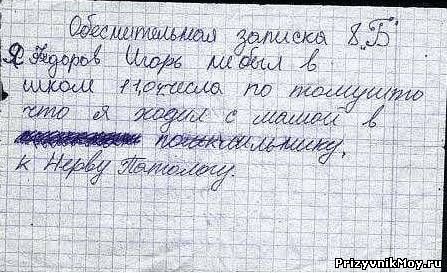 Обеснительная записка 8„Б"
Я Федоров Игорь небыл в
школи 11,0 числа по томушто
что я ходил с мамой в
к Нерву Патологу.
PrizyvnikMoy.ru